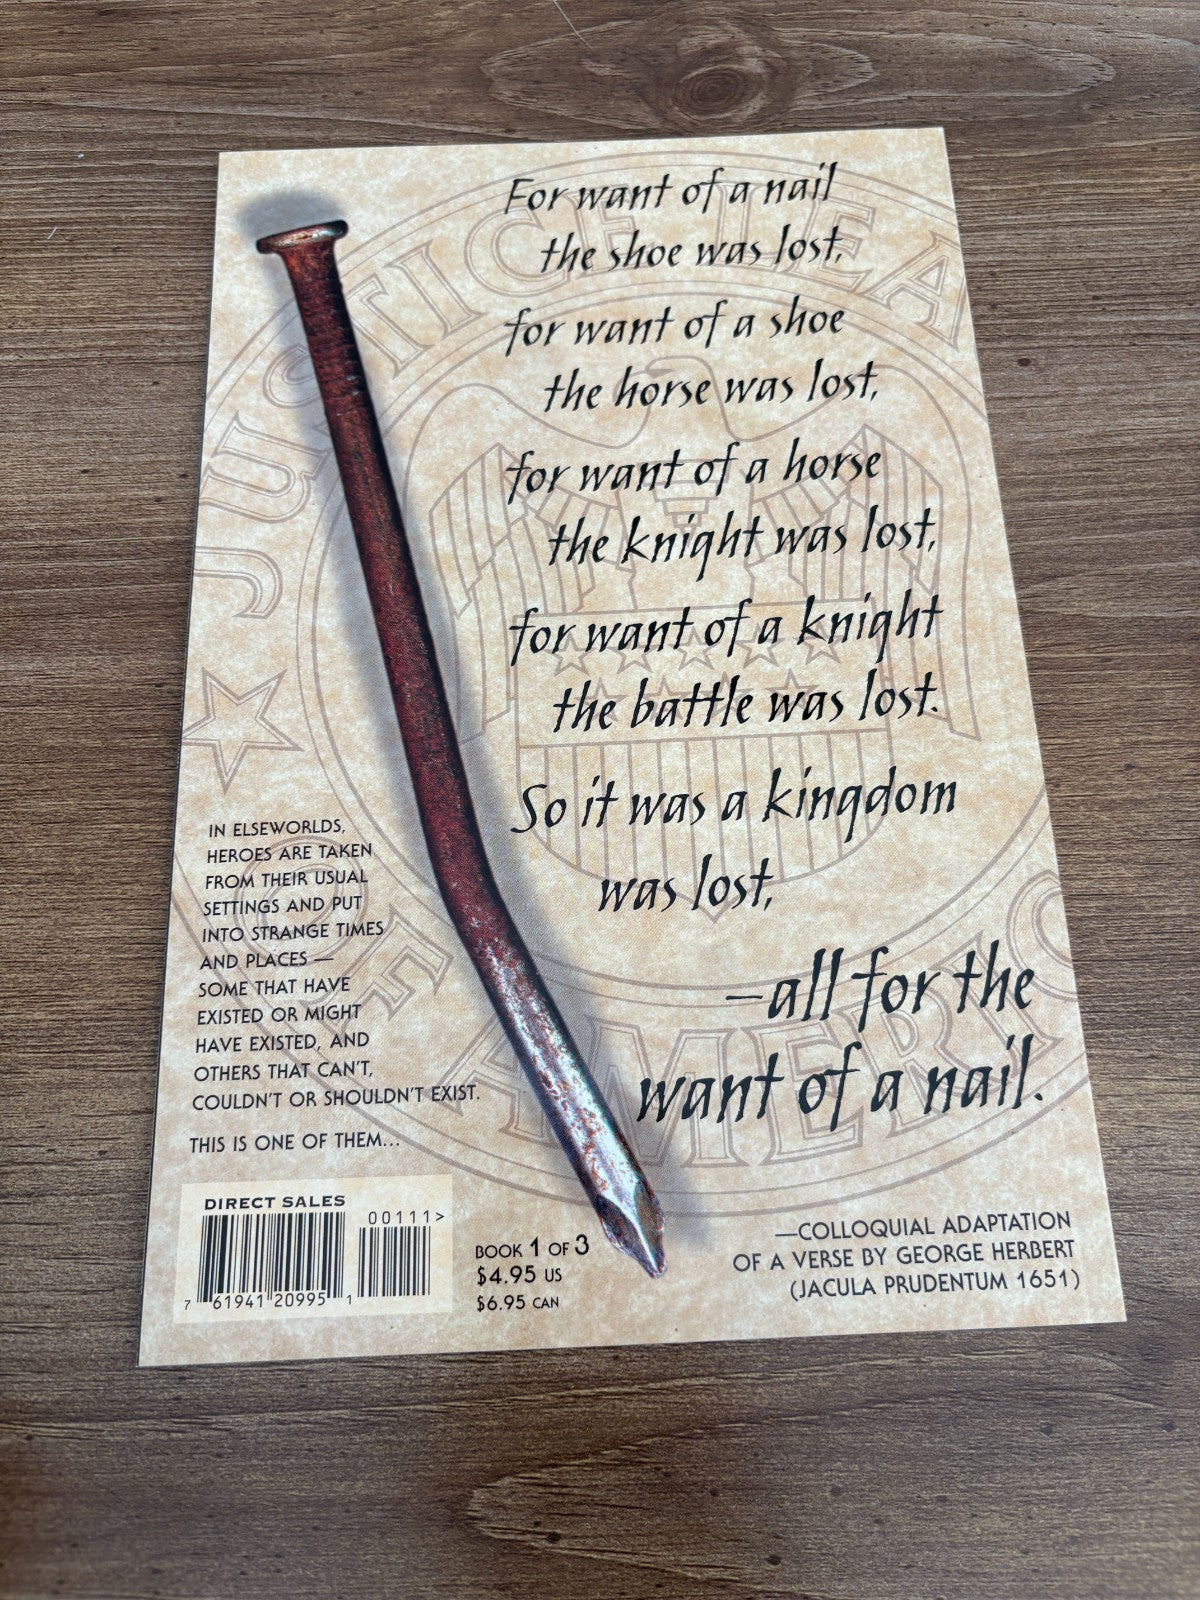 JUSTICE LEA
OF AMERIC
For want of a nail
the shoe was lost,
for want of a shoe
the horse was lost,
for want of a horse
the knight was lost,
for want of a knight
the battle was lost.
So it was a kingdom
was lost,
—all for the
want of a nail.
IN ELSEWORLDS,
HEROES ARE TAKEN
FROM THEIR USUAL
SETTINGS AND PUT
INTO STRANGE TIMES
AND PLACES —
SOME THAT HAVE
EXISTED OR MIGHT
HAVE EXISTED, AND
OTHERS THAT CAN'T,
COULDN'T OR SHOULDN'T EXIST.
THIS IS ONE OF THEM...
DIRECT SALES
00111>
7 61941 20995 1
BOOK 1 OF 3
$4.95 US
$6.95 CAN
—COLLOQUIAL ADAPTATION
OF A VERSE BY GEORGE HERBERT
(JACULA PRUDENTUM 1651)